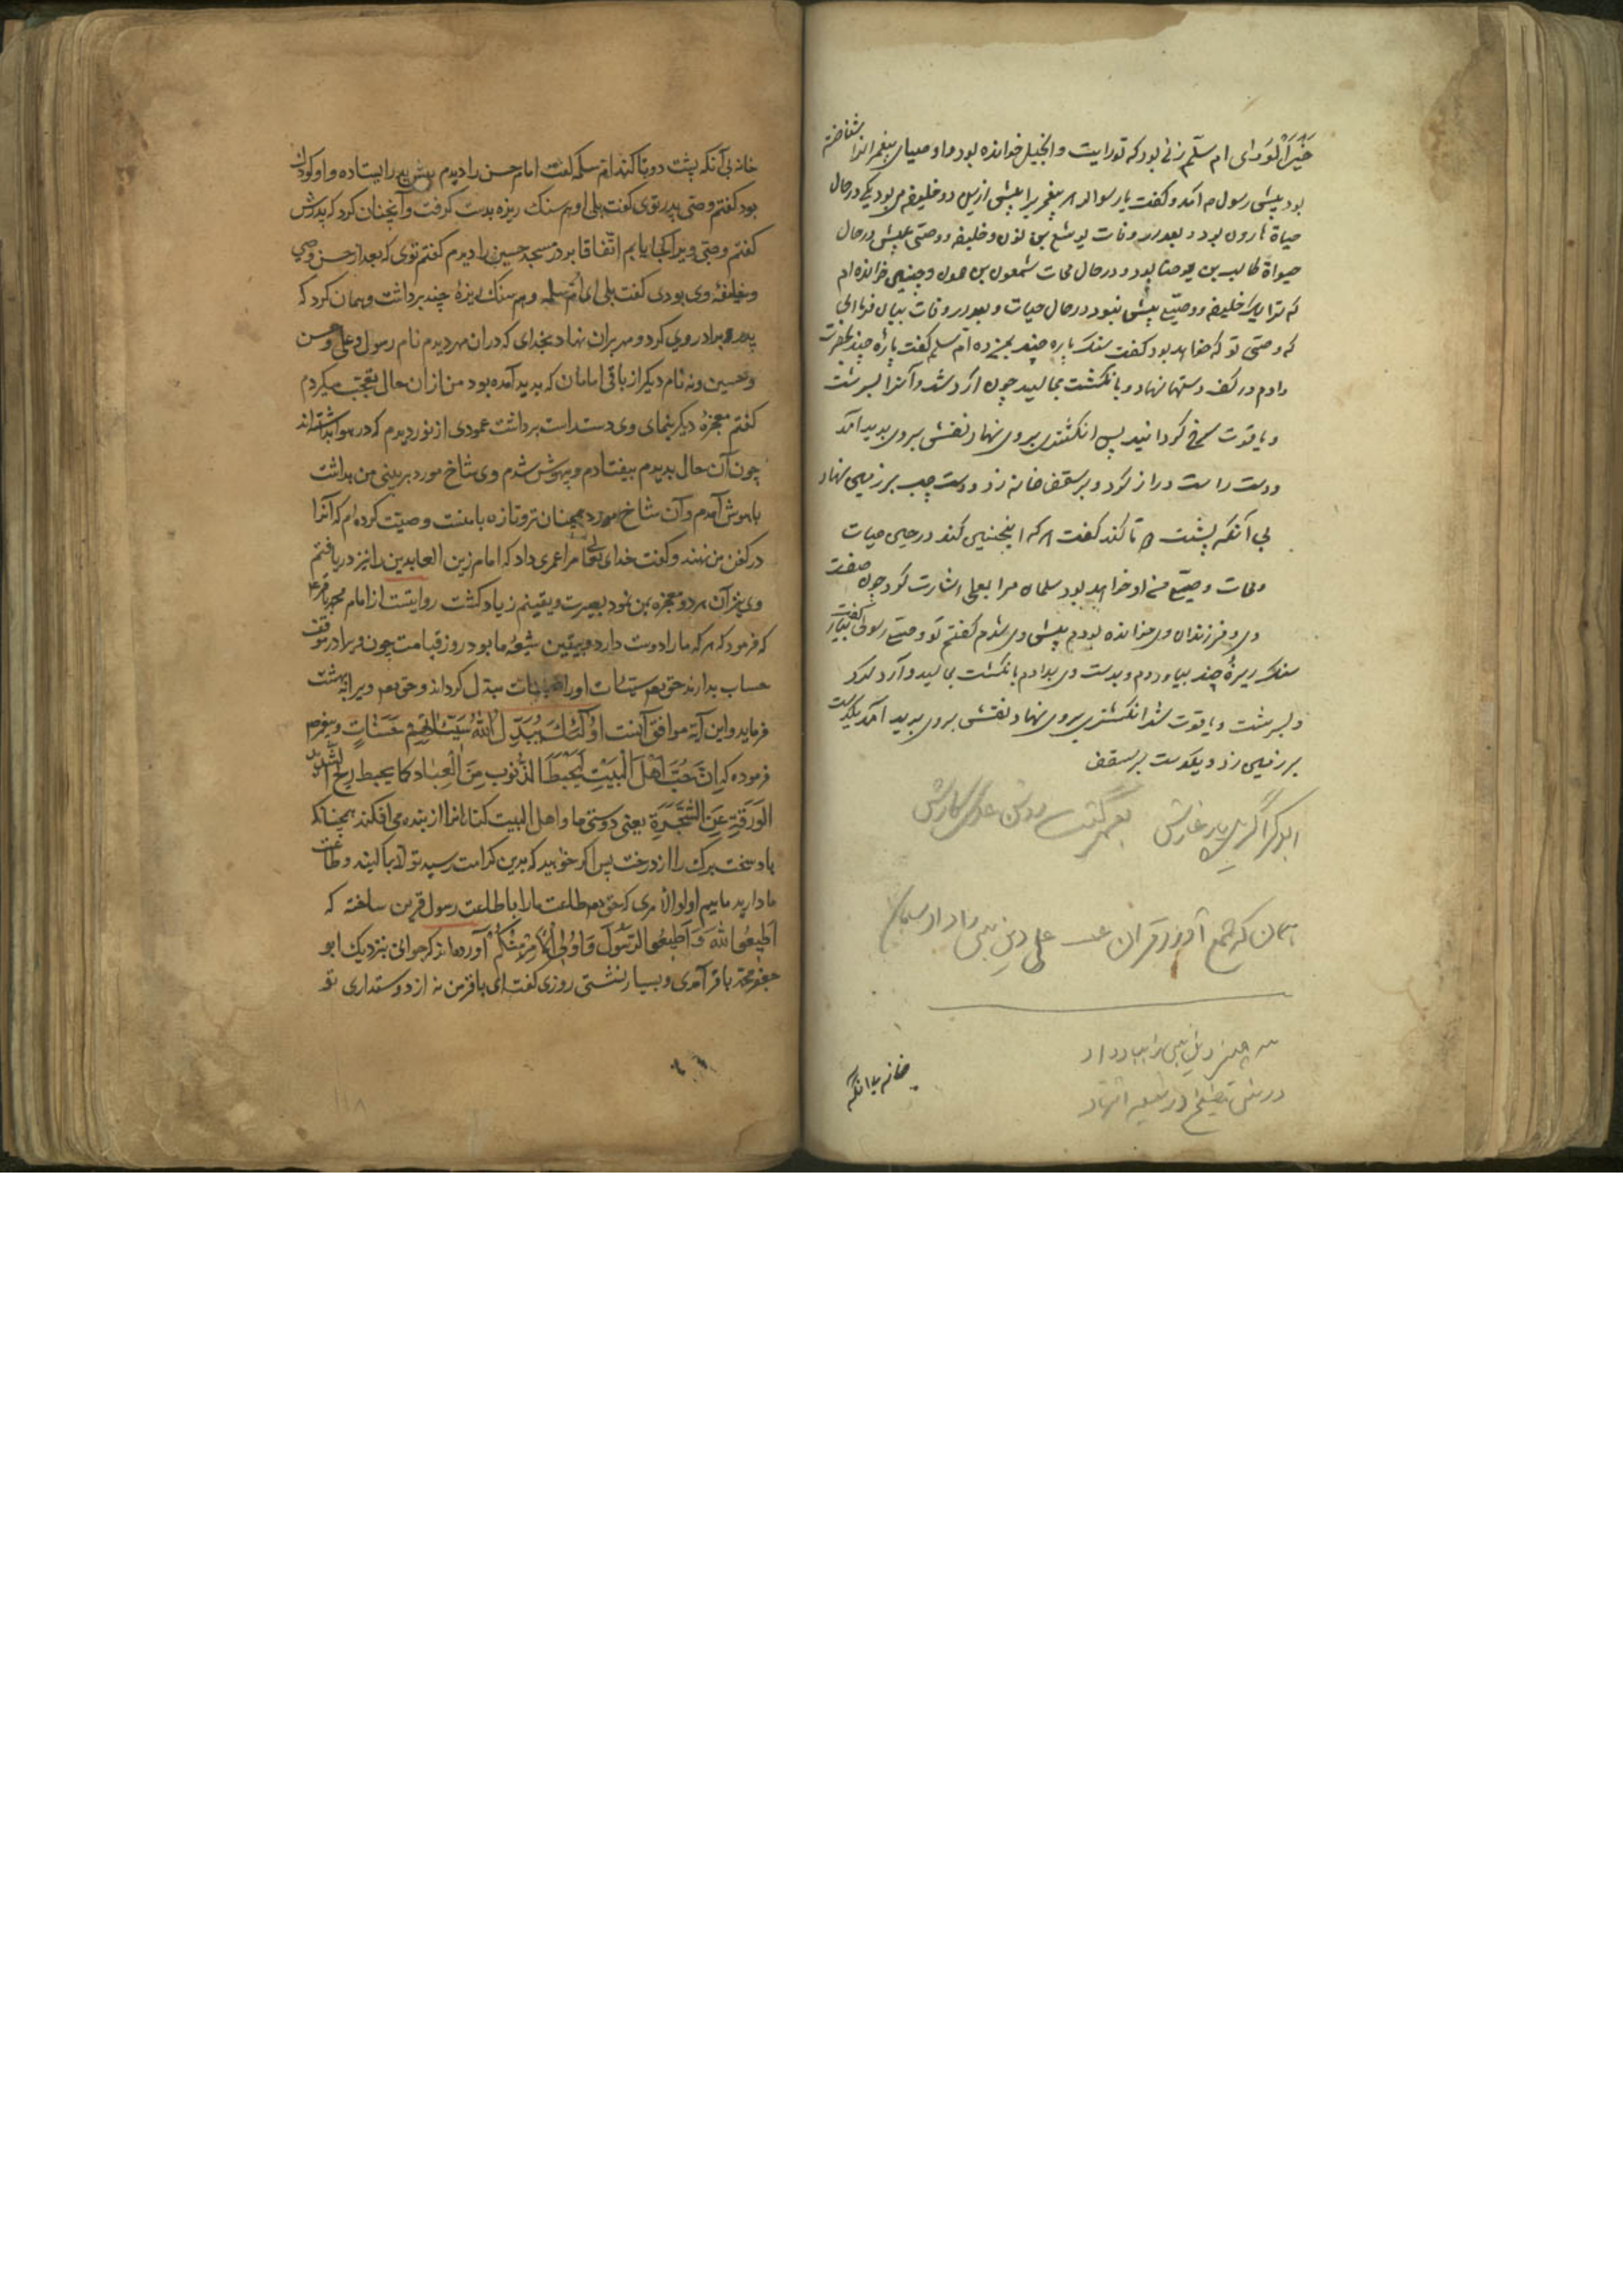 خیر الوری ام سلم زنی بود که تورایت و انجیل خوانده بود و اوصیای پیغمبرانرا شناخته
بود پیش رسول ص آمد و گفت یا رسول الله هر پیغمبریرا پیش ازین دو خلیفه می بود یکی در حال
حیاة هارون بود و بعد از وفات یوشع بن نون و خلیفه و وصی عیسی در حال
حیواة کالب بن یوحنا بود و در حال ممات شمعون بن حمون و چنین خوانده ام
که ترا یک خلیفه و وصی بیش نبود در حال حیات و بعد از وفات بیان فرمای
که وصی تو که خواهد بود گفت سنک پاره چند بمن ده ام سلم گفت پاره چند بحضرت
دادم در کف دستها نهاد و بانکشت بمالید چون آرد شد و آنرا بسرشت
و یاقوت سرخ کردانید پس انکشتری بروی نهاد نقش بروی پدید آمد
و دست راست دراز کرد و بر سقف خانه زد و دست چپ بر زمین نهاد
بی آنکه پشت دو تا کند گفت هر که اینچنین کند در حین حیات
و ممات وصی من او خواهد بود سلمان مرا بعلی اشارت کرد چون صفت
وی و فرزندان وی خوانده بودم پیش وی شدم گفتم تو وصی رسولی گفت بیار
سنک ریزهٔ چند بیاوردم و بدست وی بدادم بانکشت بمالید و آرد کرد
و بسرشت و یاقوت شد انکشتری بروی نهاد نقش بروی پدید آمد یکدست
بر زمین زد و یکدست بر سقف
ابوبکر اگر یار غارش
علی دین نبی را داد سامان
سه چیز دین نبی را بباد داد
خانه بی آنکه
خانه بی آنکه پشت دوتا کند ام سلم گفت امام حسن را دیدم پیش پدر ایستاده و او کودک
بود گفتم وصی پدر توی گفت بلی او هم سنک ریزه بدست گرفت و آنچنان کرد که پدرش
گفتم وصی ویرا کجا یابم اتفاقا بود در مسجد حسین را دیدم گفتم توی که بعد از حسن وصی
و خلیفهٔ وی بودی گفت بلی ای ام سلمه و هم سنک ریزهٔ چند برداشت و همان کرد که
پدر و برادر وی کرد و مهر بران نهاد بخدای که دران مهر دیدم نام رسول و علی و حسن
و حسین و نه نام دیگر از باقی امامان که پدید آمده بود من ازان حال تعجب میکردم
گفتم معجزهٔ دیگر بنمای وی دست راست برداشت عمودی از نور دیدم که در هوا بداشته اند
چون آن حال بدیدم بیفتادم و بیهوش شدم وی شاخ مورد بر بینی من بداشت
باهوش آمدم و آن شاخ مورد همچنان تر و تازه با منست وصیت کرده ام که آنرا
در کفن من نهند و گفت خدای تعالی مرا عمری داد که امام زین العابدین را نیز دریافتم
وی نیز آن هر دو معجزه بمن نمود بصیرت و یقینم زیاد گشت روایتست از امام محمد باقر ع
که فرمود که هر که ما را دوست دارد و بیقین شیعهٔ ما بود روز قیامت چون ویرا در موقف
حساب بدارند حق تعالی سیئات او را بحسنات مبدل گرداند و حق تعالی ویرا بهشت
فرماید و این آیة موافق آنست اُولٰئِکَ یُبَدِّلُ اللّٰهُ سَیِّئَاتِهِمْ حَسَنَاتٍ و پیغمبر ص
فرموده که اِنَّ حُبَّ اَهْلِ الْبَیْتِ لَیَحُطُّ الذُّنُوبَ مِنَ الْعِبَادِ کما یحبط ریح الشدید
الوَرَقَةَ عَنِ الشَّجَرَةِ یعنی دوستی ما و اهل البیت گناهانرا از بنده می افکند همچنانکه
باد سخت برک را از درخت پس اگر خواهید که بدین کرامت رسید تولا بما کنید و طاعت
ما دارید ماییم اولوا الامری که حق تعالی طاعت ما را با طاعت رسول قرین ساخته که
اَطِیعُوا اللّٰهَ وَ اَطِیعُوا الرَّسُولَ وَ اُولِی الْاَمْرِ مِنْکُمْ آورده اند که جوانی بنزدیک ابو
جعفر محمد باقر آمدی و بسیار نشستی روزی گفت ای باقر من نه از دوستداری تو